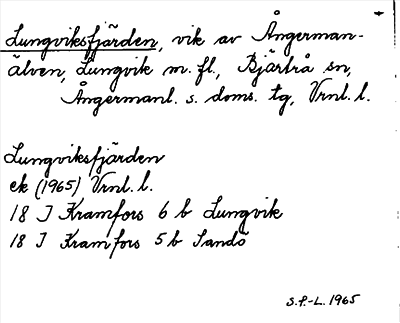 Lungviksfjärden, vik av Ångerman-
älven, Lungvik m. fl., Bjärtrå sn,
Ångermanl. s. doms. tg, Vrnl. l.
Lungviksfjärden
ek (1965) Vrnl. l.
18 J Kramfors 6 b Lungvik
18 J Kramfors 5 b Sandö
S.P.-L. 1965